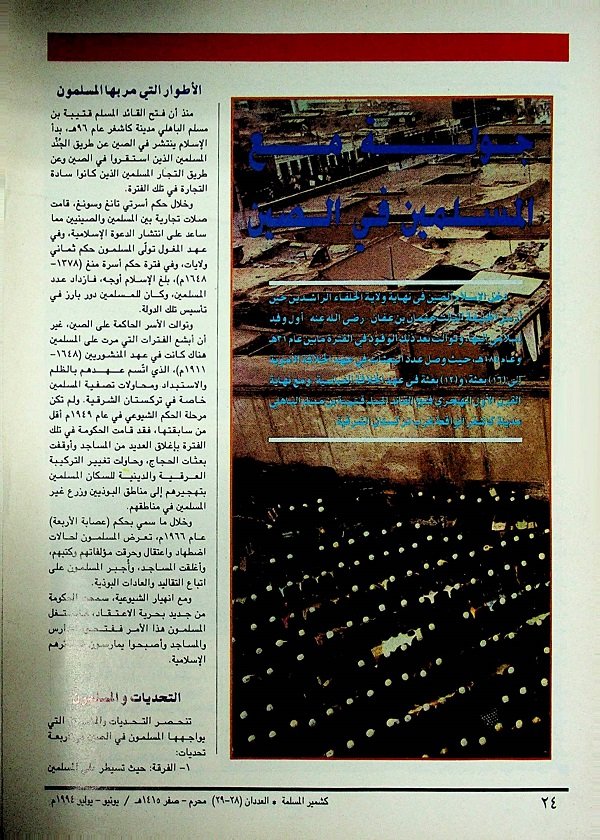 جولة مع
المسلمين في الصين
دخل الإسلام الصين في نهاية ولاية الخلفاء الراشدين حين
عثمان بن عفان رضي الله عنه أول وفد
وتوالت بعد ذلك الوفود في الفترة ما بين عام ٣١هـ
حيث وصل عدد البعثات في عهد
إلى (١٦) بعثة، و(١٢) بعثة في عهد ومع نهاية
القرن الأول الهجري فتح القائد قتيبة بن مسلم الباهلي
مدينة كاشغر تركستان الشرقية
الأطوار التي مر بها المسلمون
منذ أن فتح القائد المسلم قتيبة بن
مسلم الباهلي مدينة كاشغر عام ٩٦هـ، بدأ
الإسلام ينتشر في الصين عن طريق الجُنْد
المسلمين الذين استقروا في الصين وعن
طريق التجار المسلمين الذين كانوا سادة
التجارة في تلك الفترة.
وخلال حكم أسرتي تانغ وسونغ، قامت
صلات تجارية بين المسلمين والصينيين مما
ساعد على انتشار الدعوة الإسلامية، وفي
عهد المغول تولّى المسلمون حكم ثماني
ولايات، وفي فترة حكم أسرة منغ (١٣٧٨-
١٦٤٨م)، بلغ الإسلام أوجه، فازداد عدد
المسلمين، وكان للمسلمين دور بارز في
تأسيس تلك الدولة.
وتوالت الأسر الحاكمة على الصين، غير
أن أبشع الفترات التي مرت على المسلمين
هناك كانت في عهد المنشوريين (١٦٤٨-
١٩١١م)، الذي اتّسم عهدهم بالظلم
والاستبداد ومحاولات تصفية المسلمين
خاصة في تركستان الشرقية. ولم تكن
مرحلة الحكم الشيوعي في عام ١٩٤٩م أقل
من سابقتها، فقد قامت الحكومة في تلك
الفترة بإغلاق العديد من المساجد وأوقفت
بعثات الحجاج، وحاولت تغيير التركيبة
العرقية والدينية للسكان المسلمين
بتهجيرهم إلى مناطق البوذيين وزرع غير
المسلمين في مناطقهم.
وخلال ما سمي بحكم (عصابة الأربعة)
عام ١٩٦٦م، تعرض المسلمون لحالات
اضطهاد واعتقال وحرقت مؤلفاتهم وكتبهم،
وأغلقت المساجد، وأجبر المسلمون على
اتباع التقاليد والعادات البوذية.
ومع انهيار الشيوعية، سمحت الحكومة
من جديد بحرية الاعتقاد، فاستغل
المسلمون هذا الأمر ففتحوا المدارس
والمساجد وأصبحوا يمارسون شعائرهم
الإسلامية.
التحديات و
تنحصر التحديات التي
يواجهها المسلمون في الصين في أربعة
تحديات:
١- الفرقة: حيث تسيطر على المسلمين
٢٤
كشمير المسلمة • العددان (٢٨-٢٩) محرم - صفر ١٤١٥هـ / يونيو - يوليو ١٩٩٤م